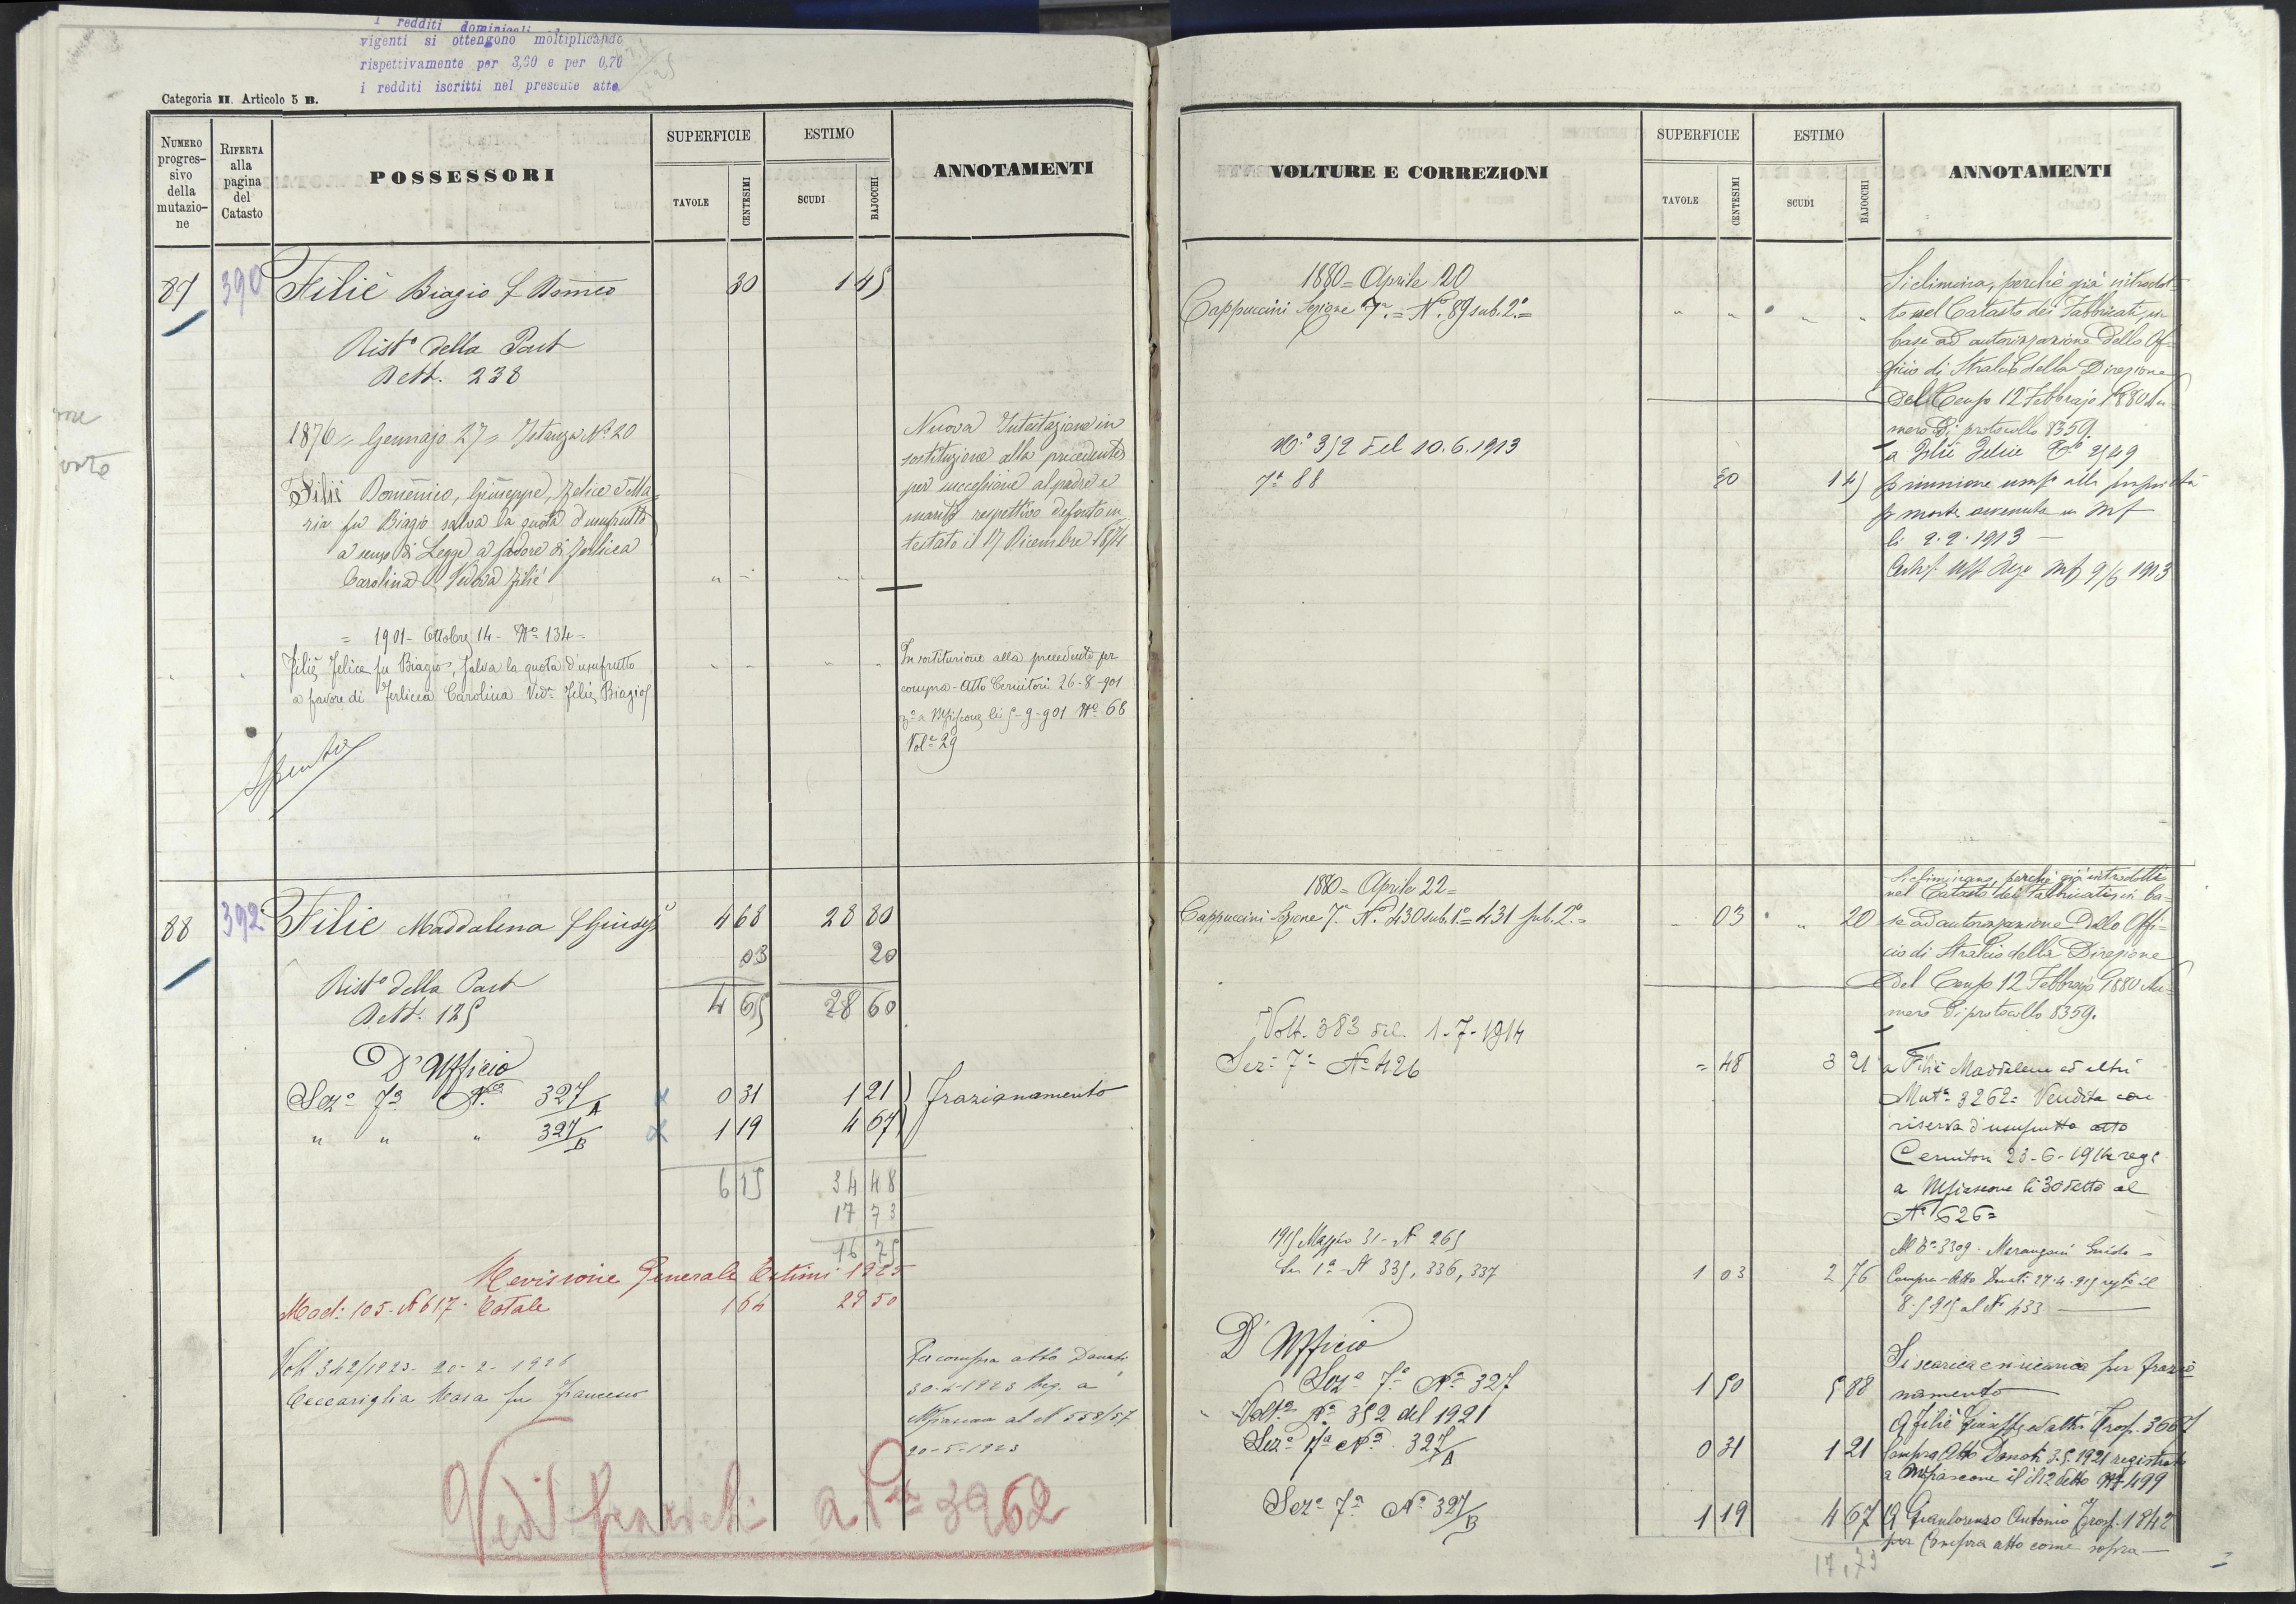 I redditi dominicali
vigenti si ottengono moltiplicando
rispettivamente per 3,30 e per 0,70
i redditi iscritti nel presente atto
Categoria II. Articolo 5 B.
NUMERO progres- sivo della mutazio- ne
RIFERTA alla pagina del Catasto
POSSESSORI
SUPERFICIE
TAVOLE
CENTESIMI
ESTIMO
SCUDI
BAJOCCHI
ANNOTAMENTI
87 390 Filiè Biagio f Domeco 30 1 45
Rist° della Part
Dett. 238
1876 = Gennajo 27 = Istanza N° 20
Filiè Domenico, Giuseppe, Felice e Ma=
ria fu Biagio salva la quota d'usufrutto
a senso di Legge a favore di
Carolina Vedova Filiè
Nuova Intestazione in
sostituzione alla precedente
per successione al padre e
marito respettivo defonto in
testato il 17 Dicembre 1874
= 1901 - Ottobre 14 - N° 134 =
Filiè Felice fu Biagio, salva la quota d'usufrutto
a favore di Carolina Ved. Filiè Biagio
In sostituzione alla precedente per
compra - Atto Cernitori 26-8-901
a Mfiascone li 5-9-901 N° 68
Vol. 29
Spento
88 392 Filiè Maddalena f Giusepe 4 68 28 80
03 20
Rist° della Part
Dett. 125
4 65 28 60
D'Ufficio
Sez° 7a N° 327/A 0 31 1 21
" " " 327/B 1 19 4 67
frazionamento
6 15 34 48
17 73
16 75
Revisione Generale Estimi 1925
Mod: 105 - N 617 - Totale 1 64 29 50
Volt 342/1923 - 20-2-1926
Ceccariglia Rosa fu Francesco
Per compra atto Donati
30-4-1923 Reg. a
Mfiascone al N 558/57
20-5-1923
Vedi a Pta 3962
VOLTURE E CORREZIONI
SUPERFICIE
TAVOLE
CENTESIMI
ESTIMO
SCUDI
BAJOCCHI
ANNOTAMENTI
1880 = Aprile 20
Cappuccini Sezione 7a = N° 89 sub. 2° =
Si elimina, perchè già introdot=
to nel Catasto dei Fabbricati, in
base ad autorizzazione dello Of=
ficio di Stralcio della Direzione
del Censo 12 Febbrajo 1880 Nu=
mero di protocollo 8359
N° 352 del 10.6.1913
7a 88 30 1 45
a Filiè Felice 2549
p riunione usuf° alla proprietà
p morte avvenuta in Mf
li 2.2.1913 —
Certif. Uff Reg° Mf 9/6 1913
1880 = Aprile 22 =
Cappuccini Sezione 7a N° 430 sub. 1° = 431 sub. 2° = 03 20
Si eliminano, perchè già introdotti
nel Catasto dei Fabbricati, in ba=
se ad autorizzazione dello Offi=
cio di Stralcio della Direzione
del Censo 12 Febbrajo 1880 Nu=
mero di protocollo 8359.
Volt. 383 del 1-7-1914
Sez° 7a N° 426 = 48 3 21
a Filiè Maddalena ed altri
Mut° 3262 = Vendita con
riserva d'usufrutto atto
Cernitori 23-6-1914 reg°
a Mfiascone li 30 detto al
N° 626 =
1915 Maggio 31 - N 265
Sez 1a N 335, 336, 337 1 03 2 76
Al P° 3309. Marangoni Guido -
Compra - Atto Donati 27-4-915 regto il
8-5-915 al N° 433 —
D'Ufficio
Sez° 7a N° 327 1 50 5 88
Si scarica e si ricarica per frazio
namento
Volt° N° 352 del 1921
Sez° 7a N° 327/A 0 31 1 21
A Filiè Giuseppe ed altri
Compra Atto Donati 3.5.1921 registrato
a Mfiascone il 12 detto N° 499
Sez° 7a N° 327/B 1 19 4 67
A Gianlorenzo Antonio Prop. 1842
per Compra atto come sopra —
17,73